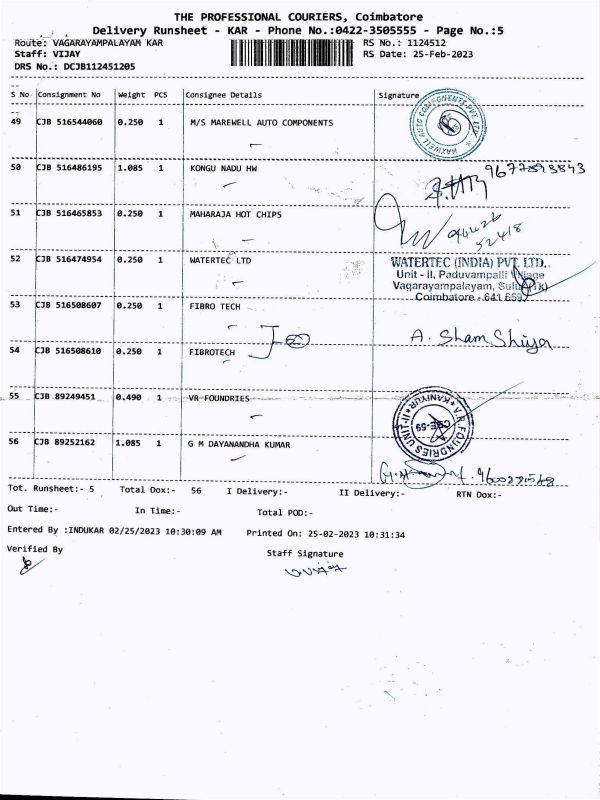 THE PROFESSIONAL COURIERS, Coimbatore
Delivery Runsheet - KAR - Phone No.:0422-3505555 - Page No.:5
Route: VAGARAYAMPALAYAM KAR RS No.: 1124512
Staff: VIJAY RS Date: 25-Feb-2023
DRS No.: DCJB112451205
S No Consignment No Weight PCS Consignee Details Signature
49 CJB 516544060 0.250 1 M/S MAREWELL AUTO COMPONENTS
50 CJB 516486195 1.085 1 KONGU NADU HW
51 CJB 516465853 0.250 1 MAHARAJA HOT CHIPS
52 CJB 516474954 0.250 1 WATERTEC LTD
WATERTEC (INDIA) PVT. LTD.
Unit - II, Paduvampalli Village
Vagarayampalayam, Sulur (TK)
Coimbatore - 641 659
53 CJB 516508607 0.250 1 FIBRO TECH
A. Sham Shiya
54 CJB 516508610 0.250 1 FIBROTECH
55 CJB 89249451 0.490 1 VR FOUNDRIES
V.R. FOUNDRIES UNIT - II * KANIYUR *
CBE-59
56 CJB 89252162 1.085 1 G M DAYANANDHA KUMAR
Tot. Runsheet:- 5 Total Dox:- 56 I Delivery:- II Delivery:- RTN Dox:-
Out Time:- In Time:- Total POD:-
Entered By :INDUKAR 02/25/2023 10:30:09 AM Printed On: 25-02-2023 10:31:34
Verified By Staff Signature